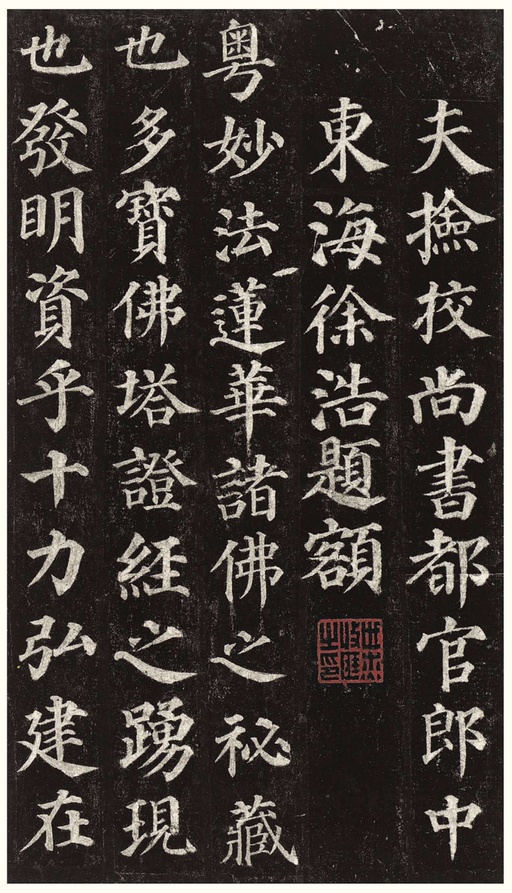 夫撿挍尚書都官郎中
東海徐浩題額
粵妙法蓮華諸佛之秘藏
也多寶佛塔證經之踴現
也發明資乎十力弘建在